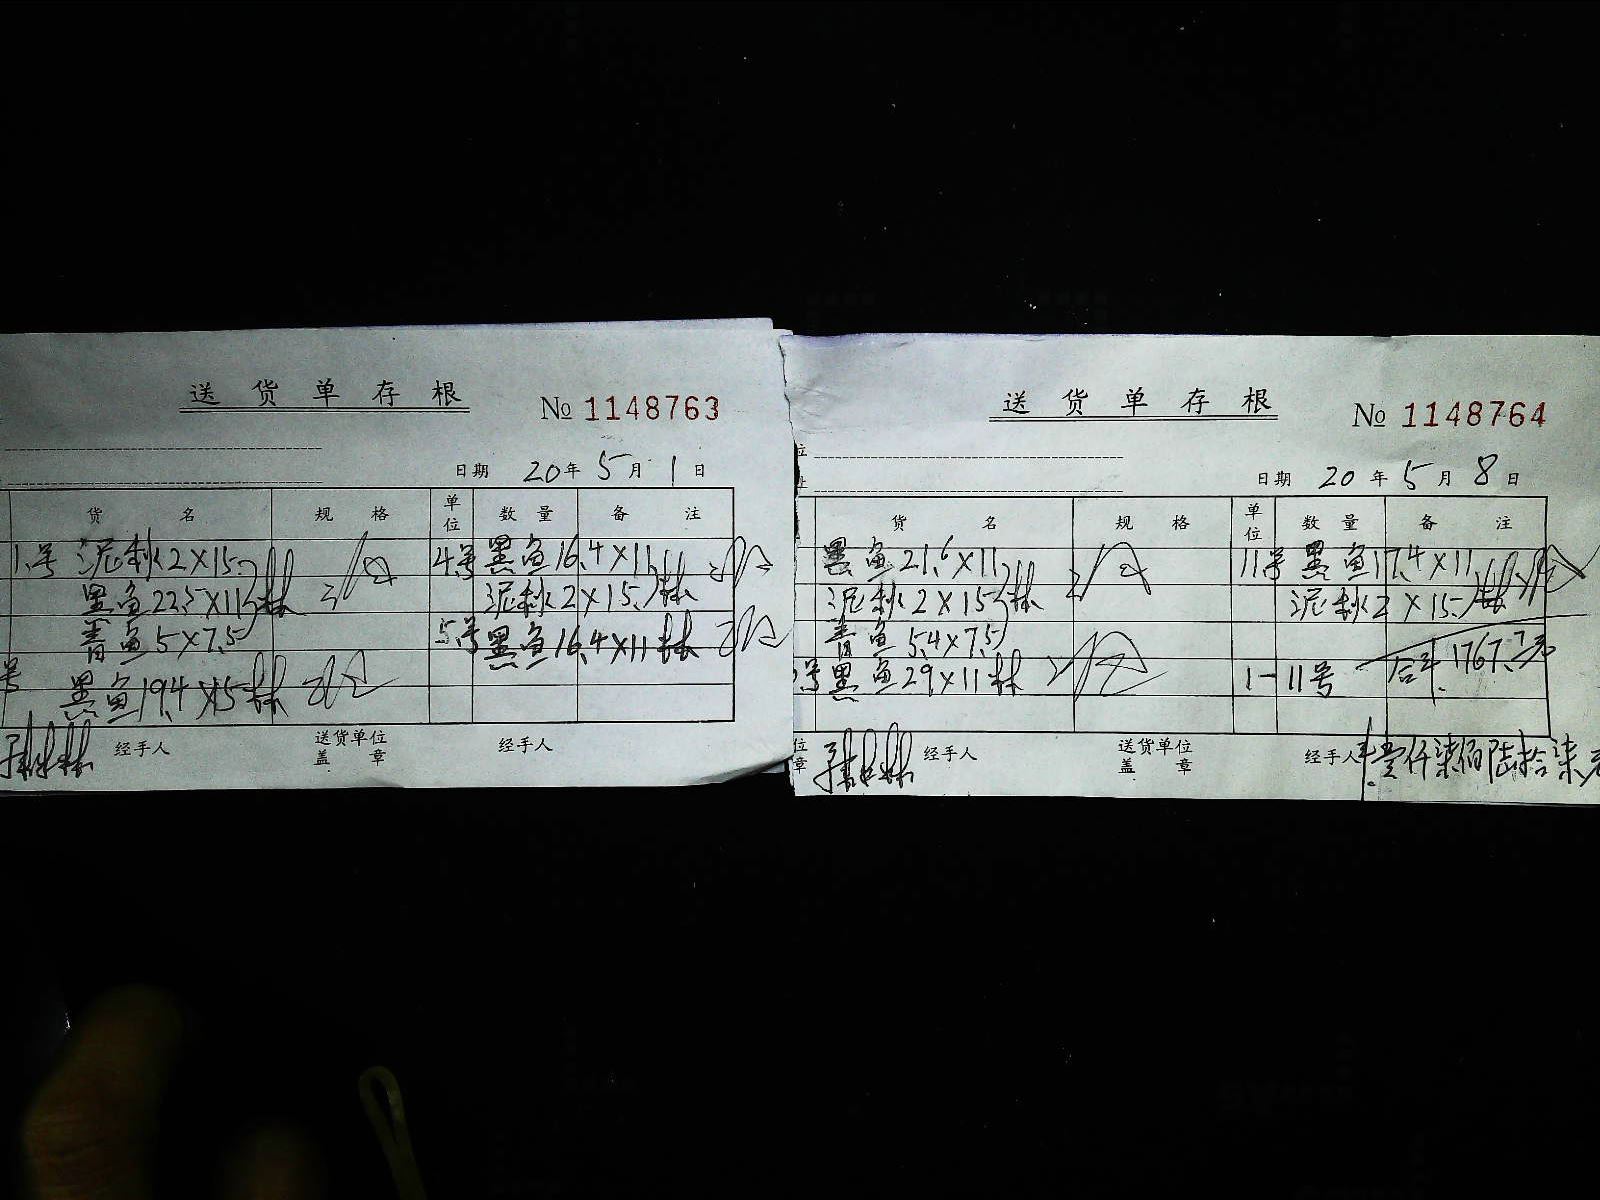 送货单存根
№ 1148763
日期 20年5月1日
货名 规格 单位 数量 备注
1号 泥秋2×15 4号 黑鱼16.4×11
黑鱼22.5×11 林 泥秋2×15 林
青鱼5×7.5 5号 黑鱼16.4×11 林
号 黑鱼19.4×15 林
经手人 送货单位盖章 经手人
送货单存根
№ 1148764
日期 20年5月8日
货名 规格 单位 数量 备注
黑鱼21.6×11 11号 黑鱼17.4×11
泥秋2×15 林 泥秋2×15 林
青鱼5.4×7.5 合计 1767.7元
号 黑鱼29×11 林 1-11号
经手人 送货单位盖章 经手人 壹仟柒佰陆拾柒元